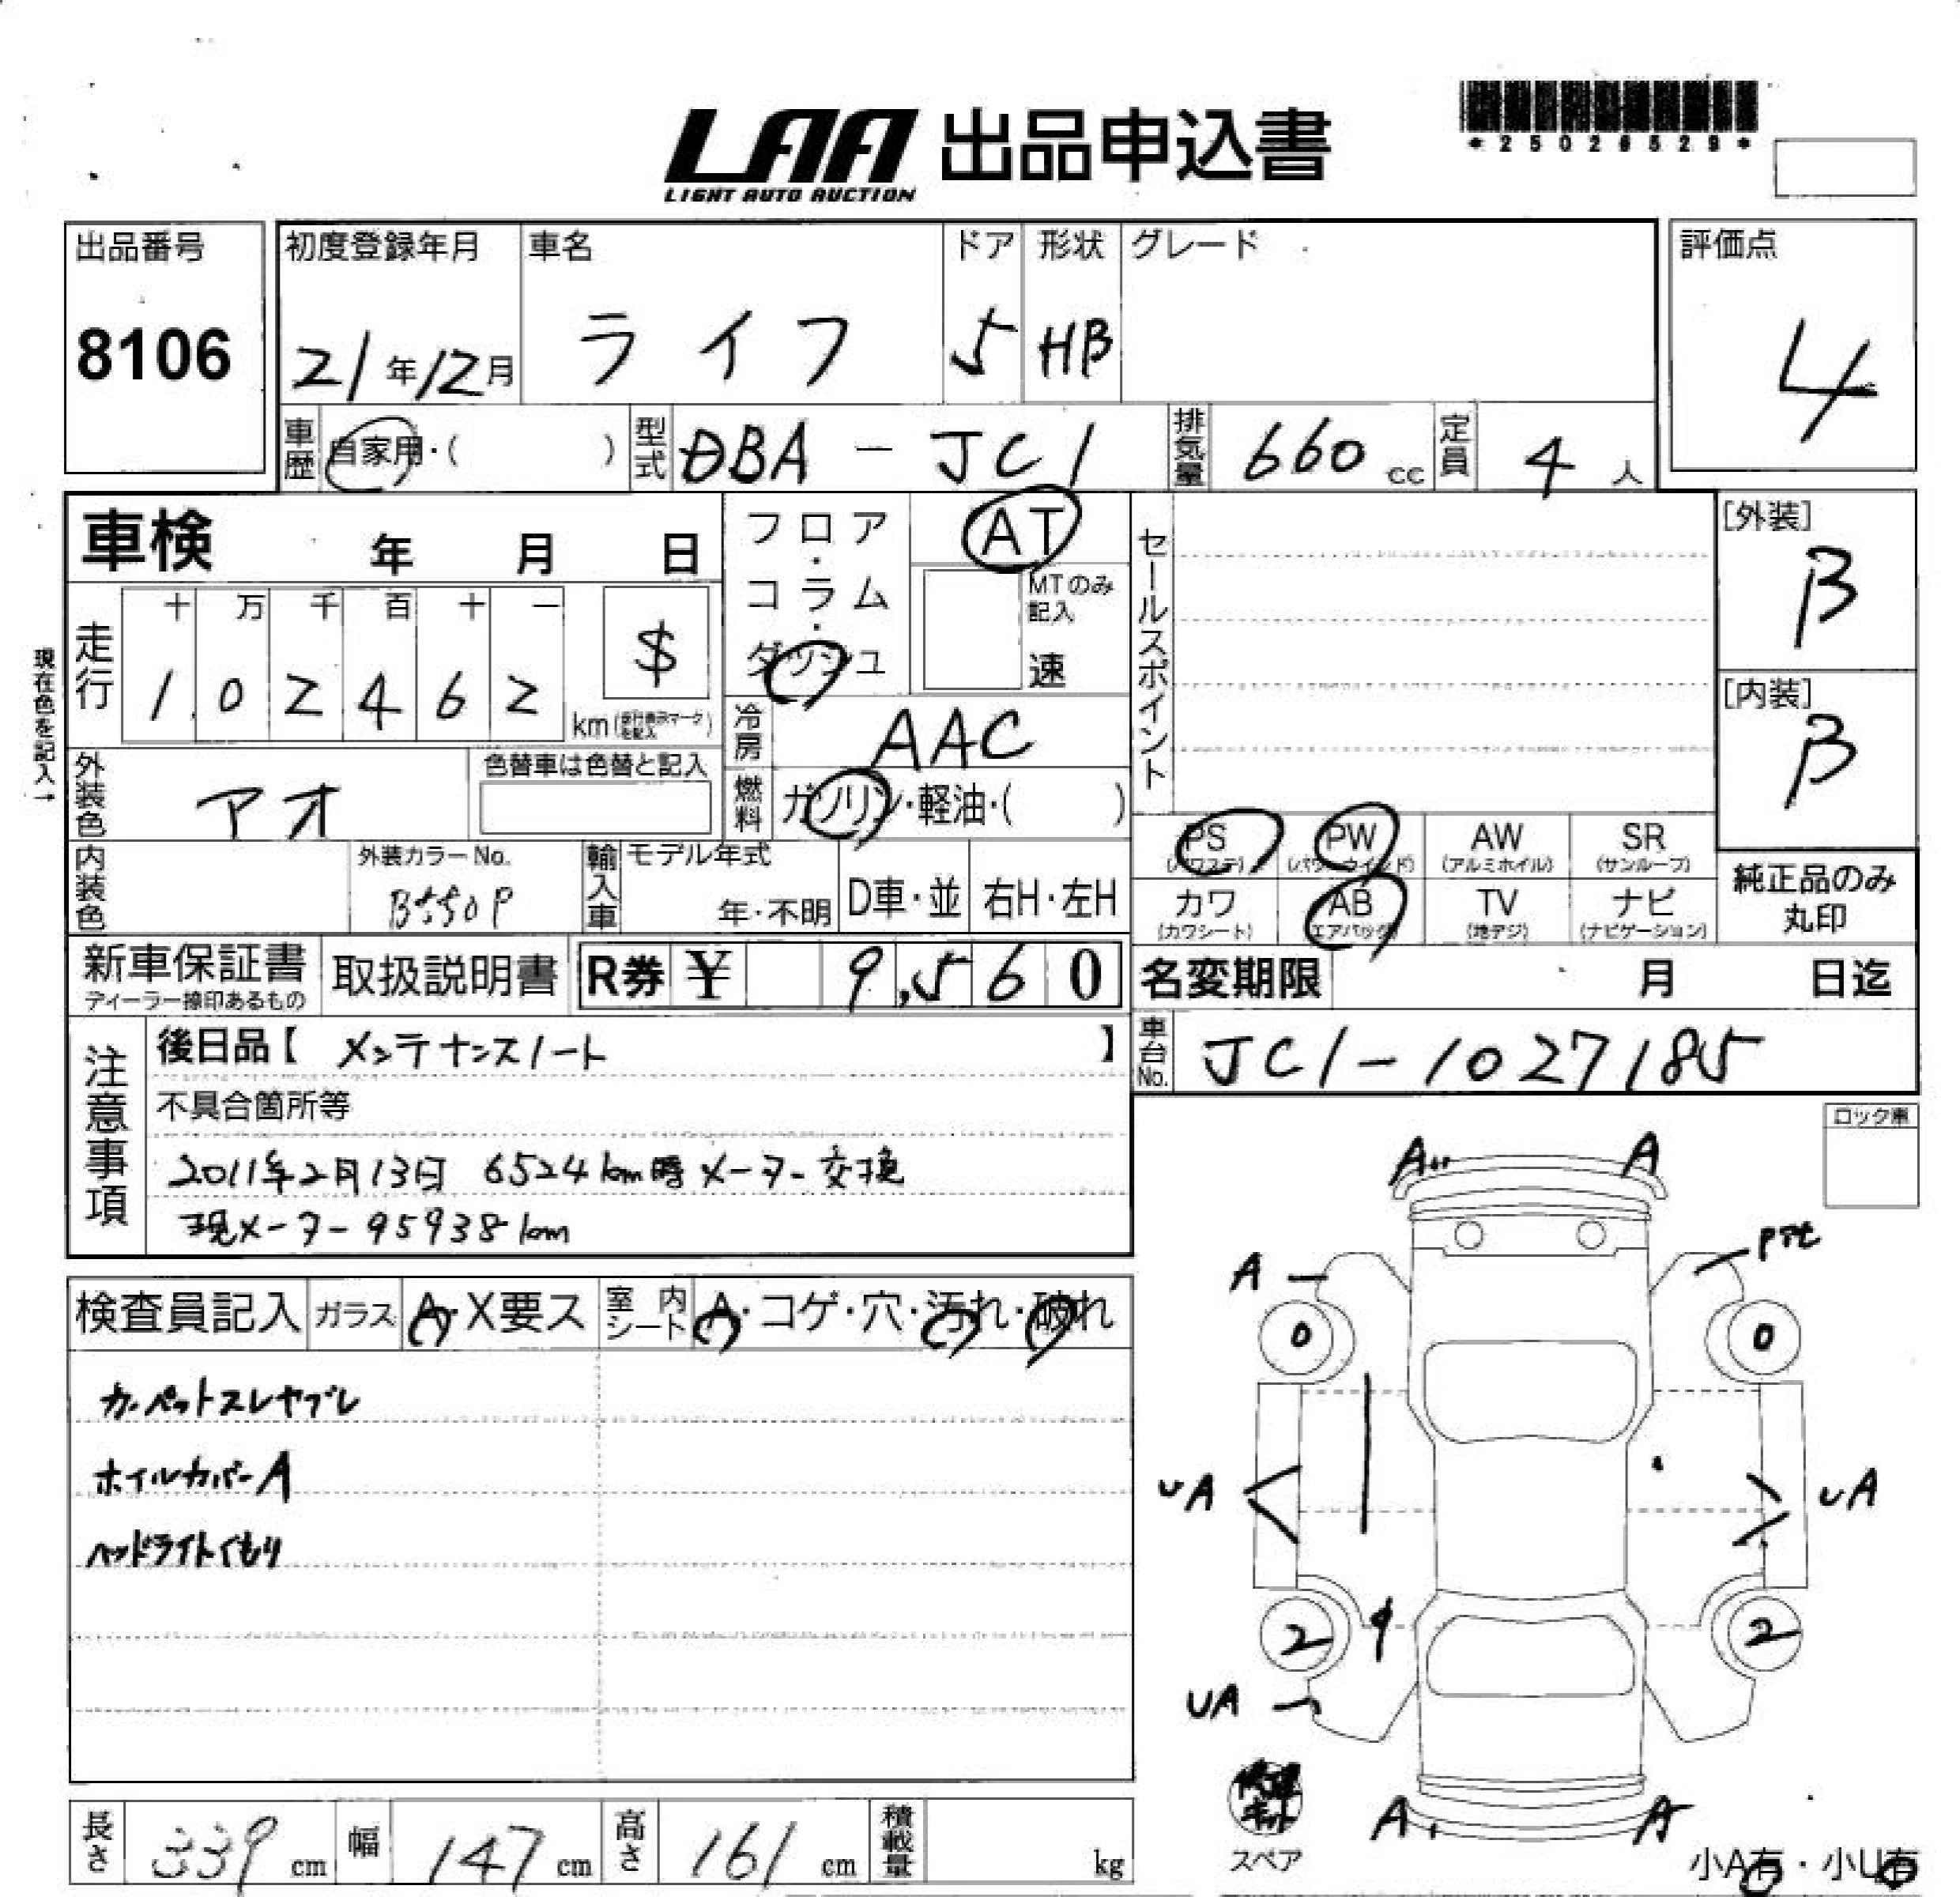 LAA 出品申込書
LIGHT AUTO AUCTION
*25028529*
出品番号
8106
初度登録年月
21年12月
車名
ライフ
ドア
5
形状
HB
グレード
評価点
4
車歴
自家用・( )
型式
DBA - JC1
排気量
660 cc
定員
4 人
車検 年 月 日
フロア・コラム・ダッシュ
AT
MTのみ記入
速
セールスポイント
[外装]
B
[内装]
B
現在色を記入→
走行
十 万 千 百 十 一
1 0 2 4 6 2
$
km
冷房
AAC
外装色
アオ
色替車は色替と記入
燃料
ガソリン・軽油・( )
PS (パワステ)
PW (パワーウインド)
AW (アルミホイル)
SR (サンルーフ)
カワ (カワシート)
AB (エアバック)
TV (地デジ)
ナビ (ナビゲーション)
純正品のみ
丸印
内装色
外装カラーNo.
B550P
輸入車
モデル年式
年・不明
D車・並
右H・左H
新車保証書
ディーラー捺印あるもの
取扱説明書
R券 ¥ 9,560
名変期限 月 日迄
車台No.
JC1-1027185
注意事項
後日品【 メンテナンスノート 】
不具合箇所等
2011年2月13日 6524km時メーター交換
現メーター95938km
ロック車
検査員記入
ガラス
A・X要ス
室内シート
A・コゲ・穴・汚れ・破れ
カーペットスレヤブレ
ホイルカバーA
ヘッドライトくもり
A A
A
0 0
UA UA
2 2
UA
A A
スペア
小A有・小U有
長さ
339 cm
幅
147 cm
高さ
161 cm
積載量
kg